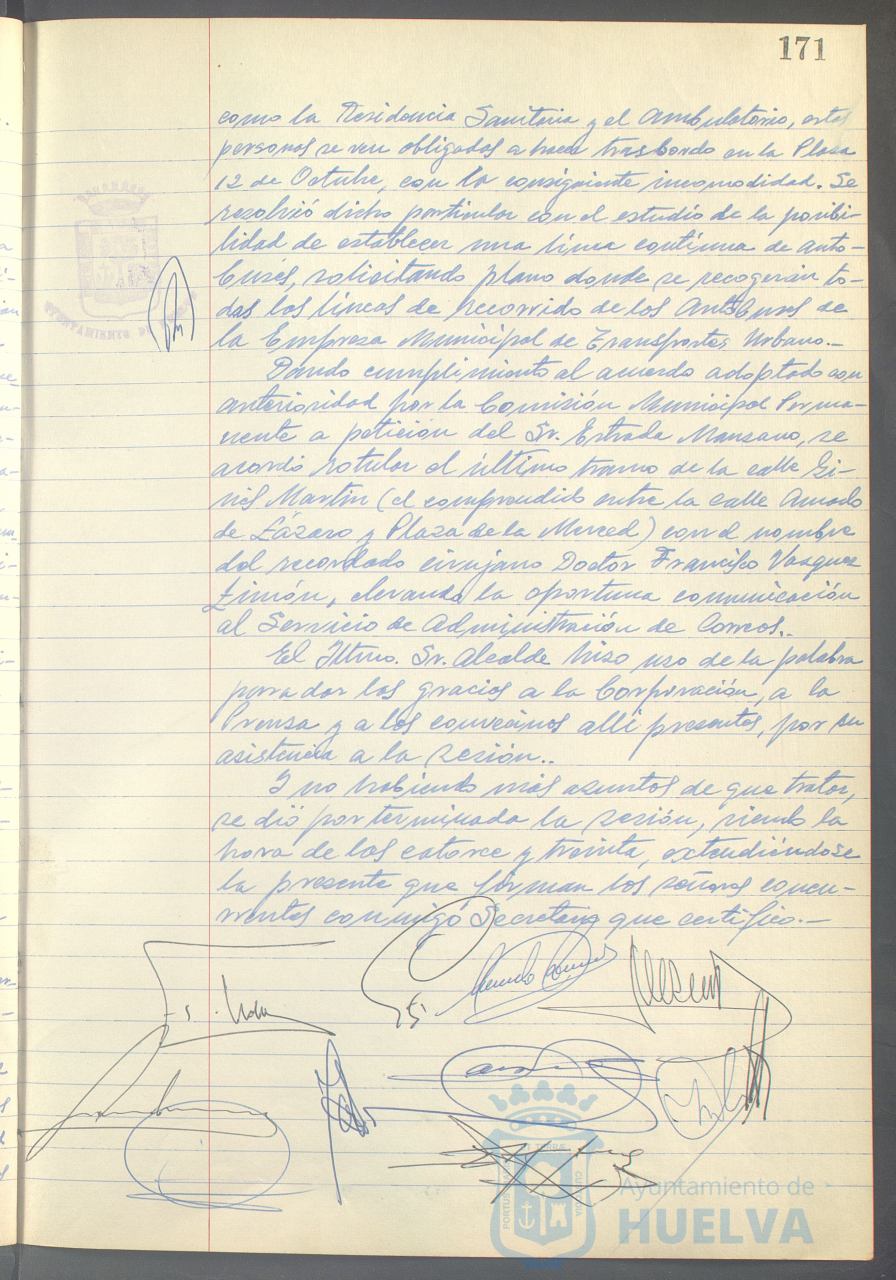 171
como la Residencia Sanitaria y el Ambulatorio, estas
personas se ven obligadas a hacer trasbordo en la Plaza
12 de Octubre, con la consiguiente incomodidad. Se
resolvió dicho particular con el estudio de la posibi-
lidad de establecer una línea contínua de auto-
buses, solicitando plano donde se recogerán to-
das las líneas de recorrido de los Autobuses de
la Empresa Municipal de Transportes Urbano.-
Dando cumplimiento al acuerdo adoptado con
anterioridad por la Comisión Municipal Perma-
nente a petición del Sr. Estrada Manzano, se
acordó rotular el último tramo de la calle Gi-
nés Martín (el comprendido entre la calle Amado
de Lázaro y Plaza de la Merced) con el nombre
del recordado cirujano Doctor Francisco Vázquez
Limón, elevando la oportuna comunicación
al Servicio de Administración de Correos..
El Iltmo. Sr. Alcalde hizo uso de la palabra
para dar las gracias a la Corporación, a la
Prensa y a los convecinos allí presentes, por su
asistencia a la sesión..
Y no habiendo más asuntos de que tratar,
se dió por terminada la sesión, siendo la
hora de las catorce y treinta, extendiéndose
la presente que firman los señores concu-
rrentes conmigo Secretario que certifico.-
AYUNTAMIENTO DE
Ayuntamiento de
HUELVA